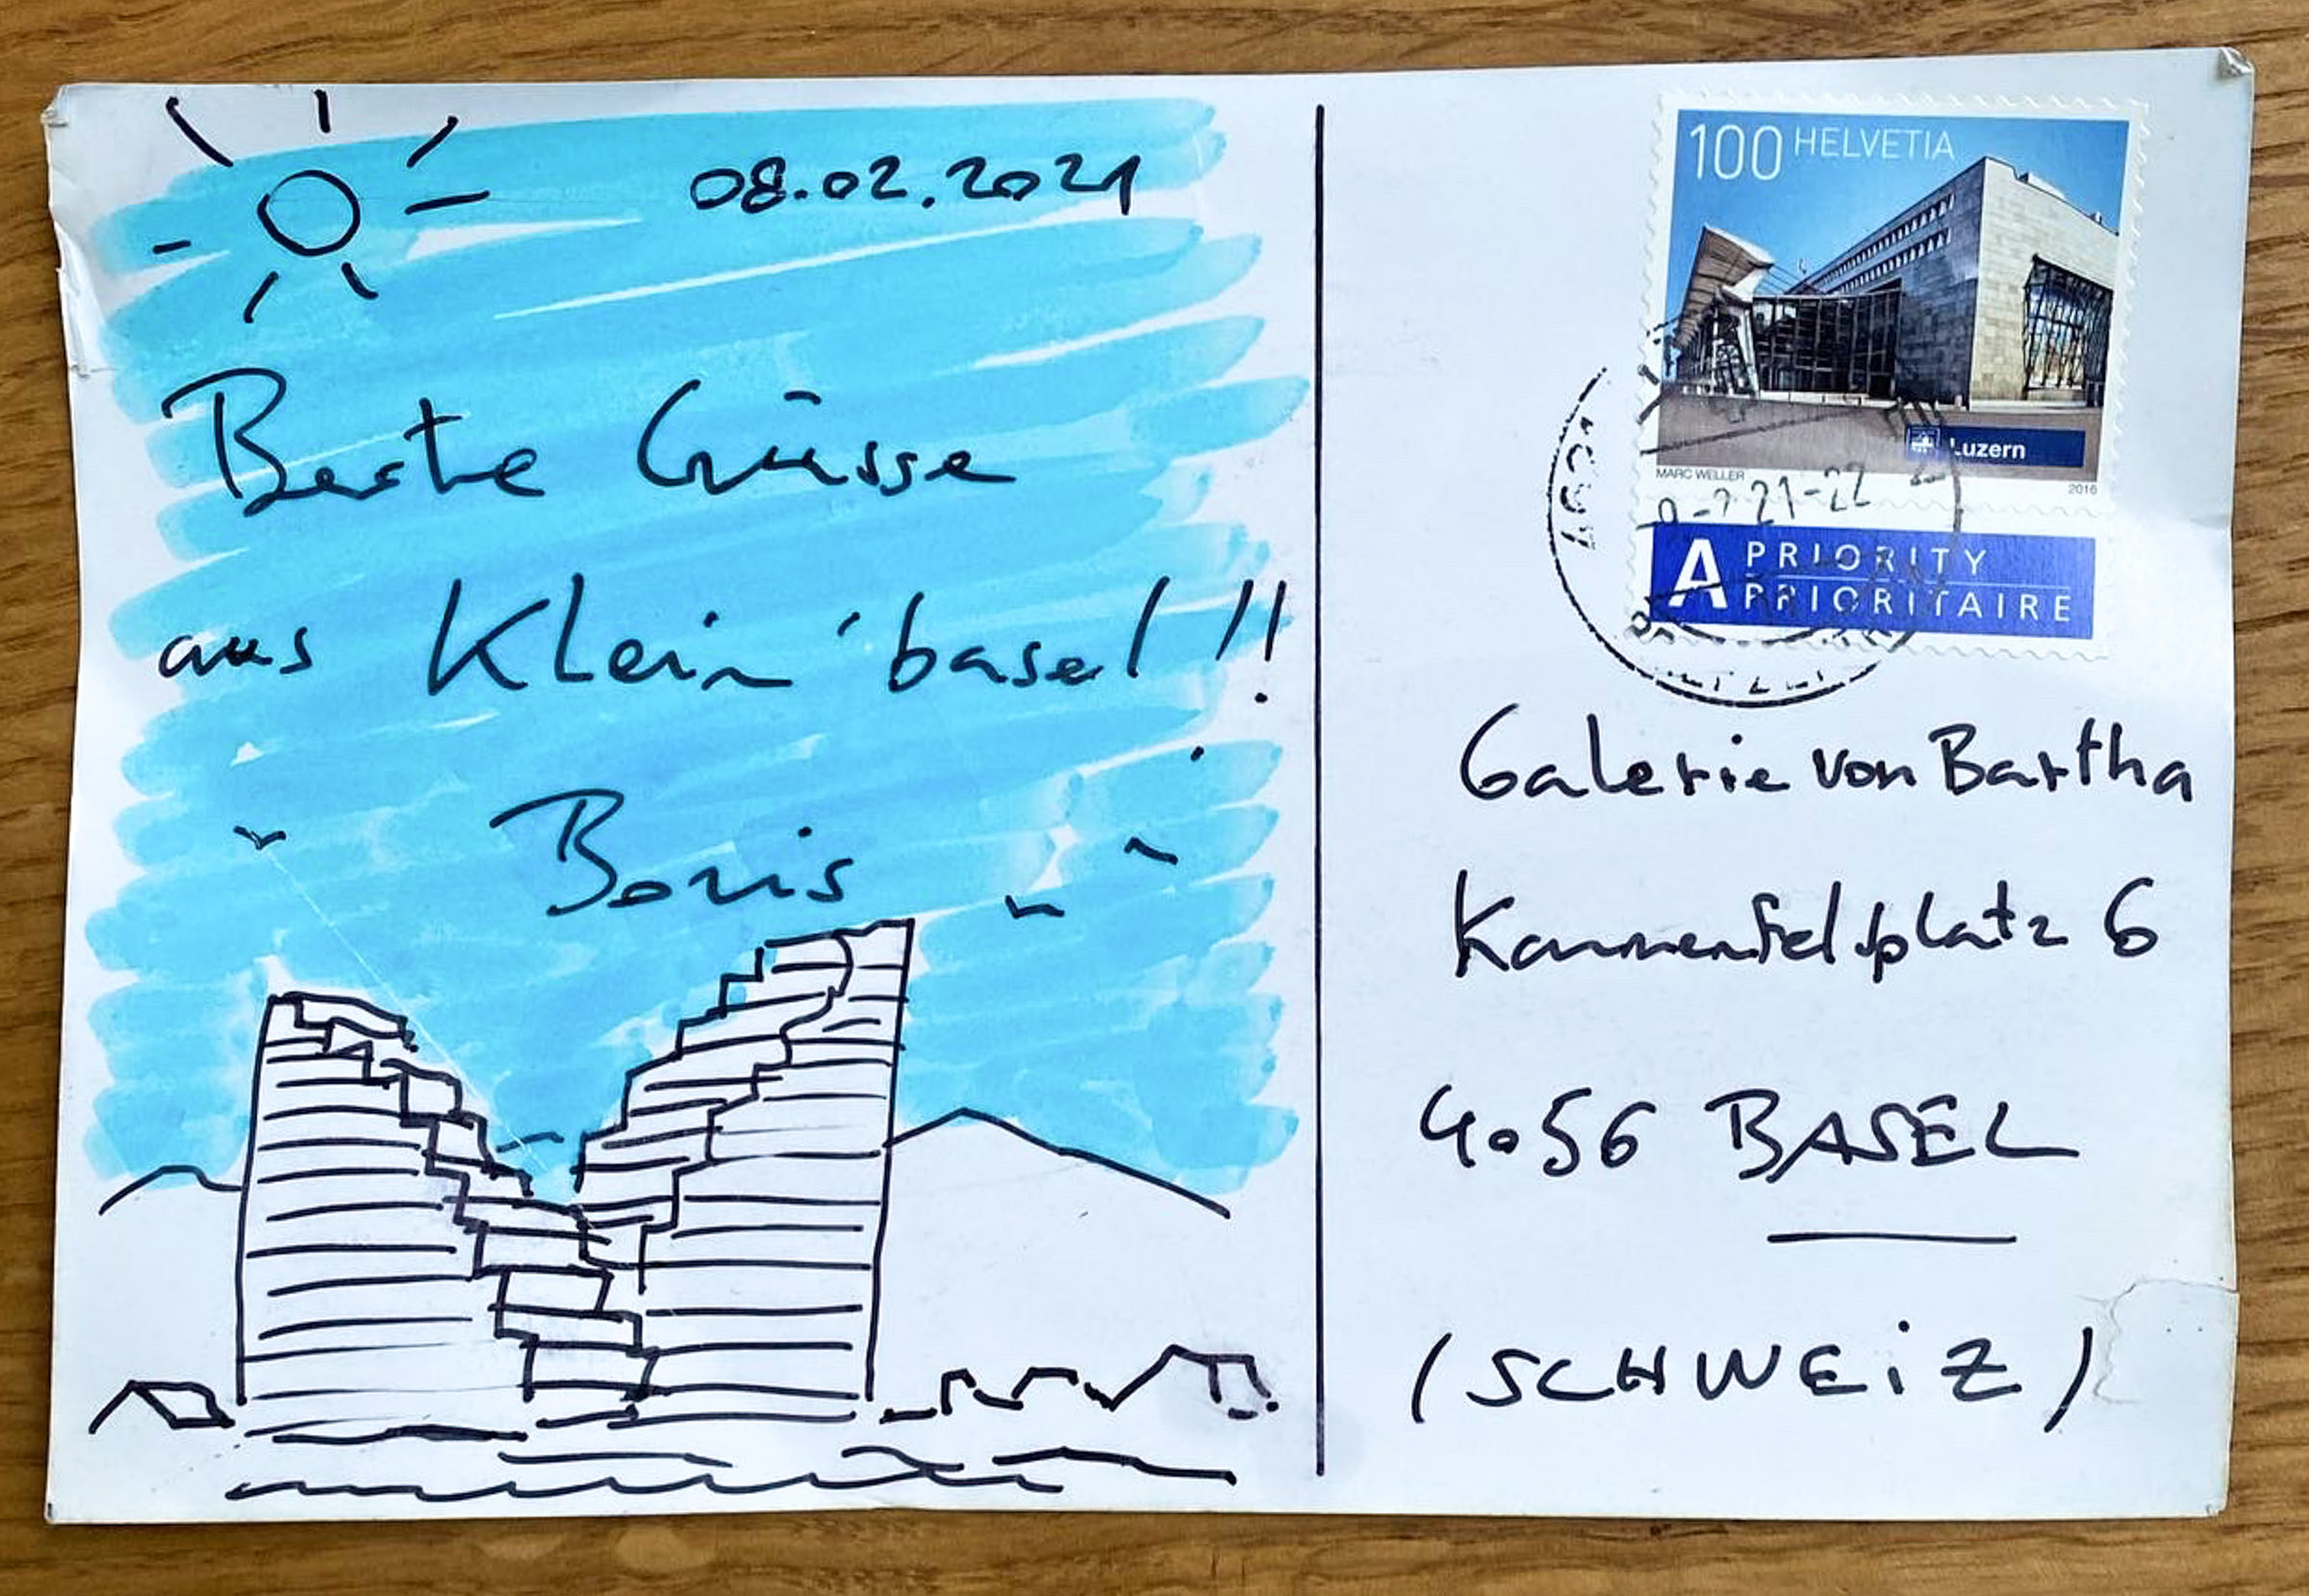 08.02.2021
Beste Grüsse
aus Klein'basel!!
Boris
100 HELVETIA
Luzern
MARC WELLER 2016
21-22
A PRIORITY
PRIORITAIRE
Galerie von Bartha
Kannenfeldplatz 6
4056 BASEL
(SCHWEiZ)